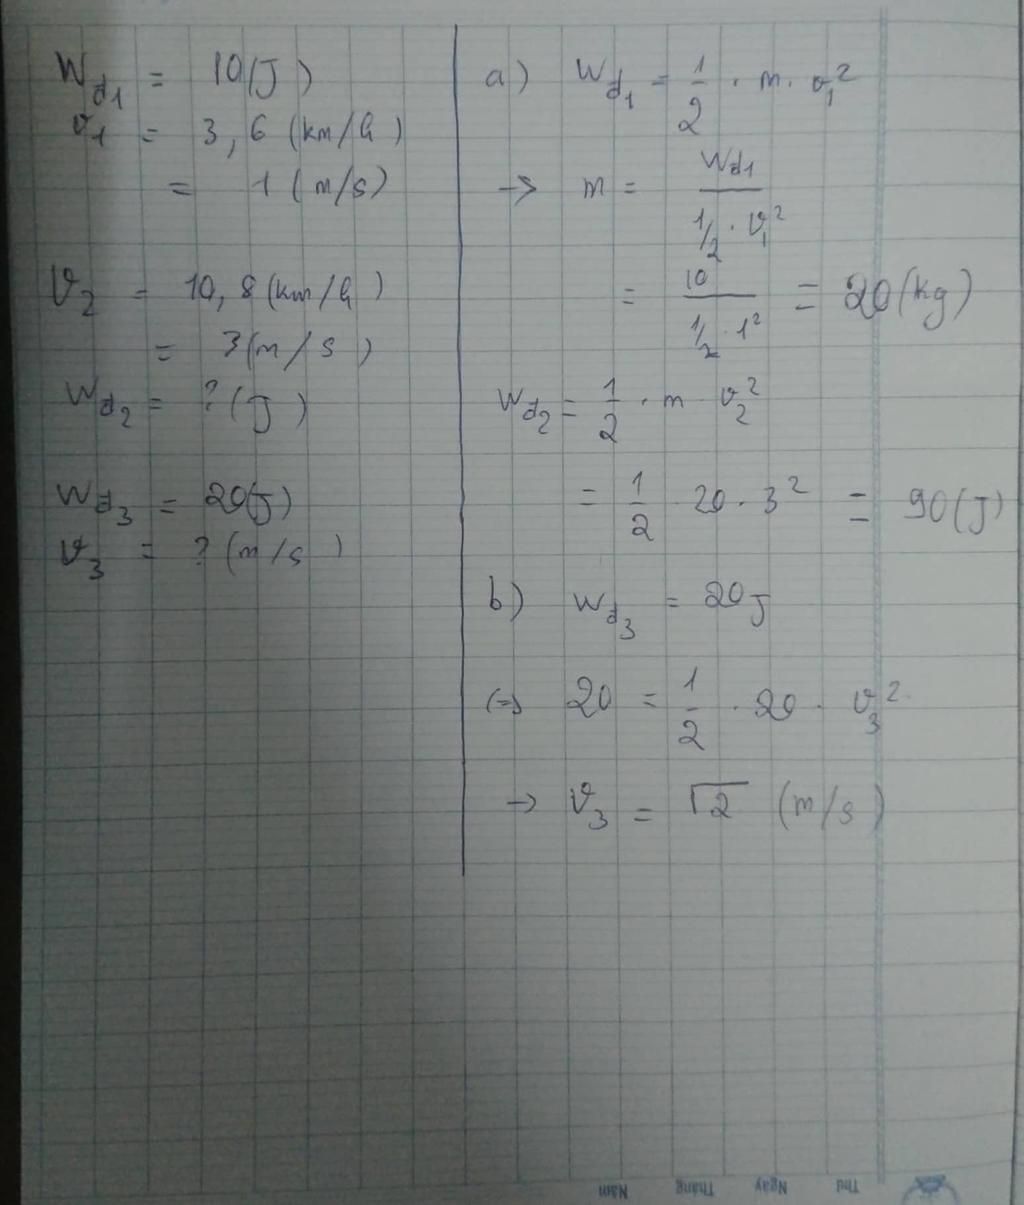 W_đ1 = 10(J)
v_1 = 3,6 (km/h)
= 1 (m/s)
v_2 = 10,8 (km/h)
= 3(m/s)
W_đ2 = ? (J)
W_đ3 = 20(J)
v_3 = ? (m/s)
a) W_đ1 = 1/2 . m . v_1^2
→ m = W_đ1 / (1/2 . v_1^2)
= 10 / (1/2 . 1^2) = 20(kg)
W_đ2 = 1/2 . m v_2^2
= 1/2 20 . 3^2 = 90(J)
b) W_đ3 = 20J
(=) 20 = 1/2 . 20 . v_3^2
→ v_3 = √2 (m/s)
Năm Tháng Ngày Thứ